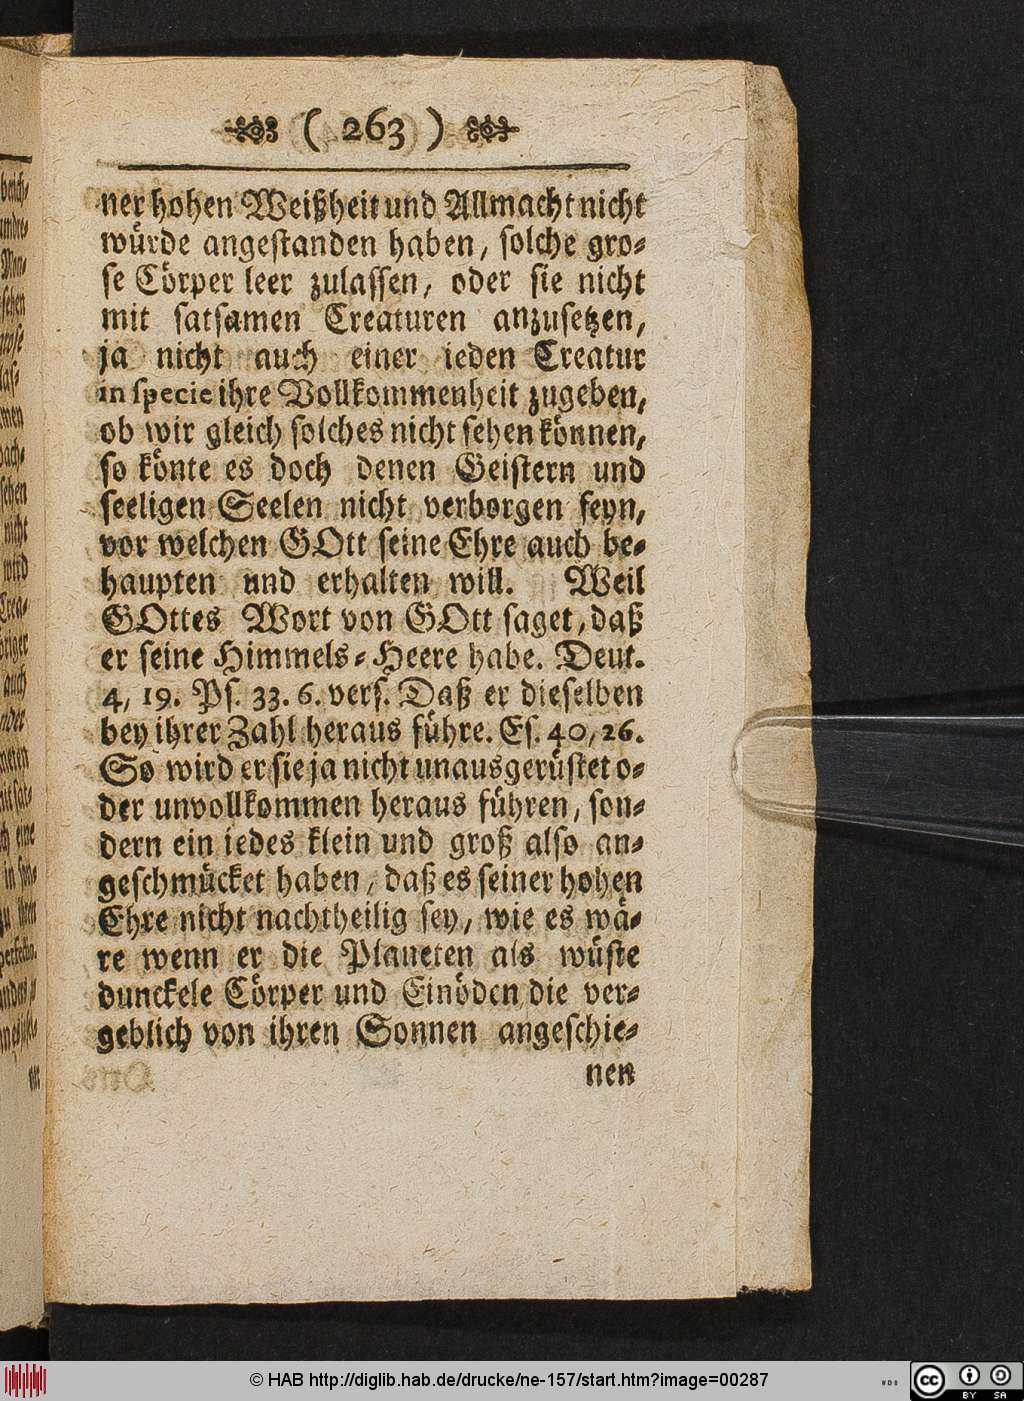 ( 263 )
ner hohen Weißheit und Allmacht nicht
würde angestanden haben, solche gro-
se Cörper leer zulassen, oder sie nicht
mit satsamen Creaturen anzusetzen,
ja nicht auch einer ieden Creatur
in specie ihre Vollkommenheit zugeben,
ob wir gleich solches nicht sehen können,
so könte es doch denen Geistern und
seeligen Seelen nicht verborgen seyn,
vor welchen GOtt seine Ehre auch be-
haupten und erhalten will. Weil
GOttes Wort von GOtt saget, daß
er seine Himmels-Heere habe. Deut.
4, 19. Ps. 33. 6. vers. Daß er dieselben
bey ihrer Zahl heraus führe. Es. 40, 26.
So wird er sie ja nicht unausgerüstet o-
der unvollkommen heraus führen, son-
dern ein iedes klein und groß also an-
geschmücket haben, daß es seiner hohen
Ehre nicht nachtheilig sey, wie es wä-
re wenn er die Planeten als wüste
dunckele Cörper und Einöden die ver-
geblich von ihren Sonnen angeschie-
nen
© HAB http://diglib.hab.de/drucke/ne-157/start.htm?image=00287
cc BY SA